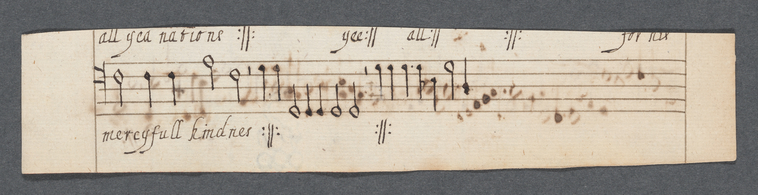 all yea nations :||: yee:|| all:|| :||: for his
mercyfull kindnes :||: :||: